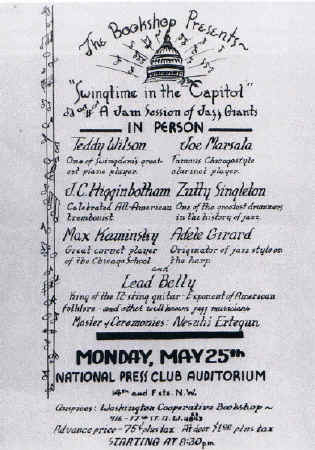 The Bookshop Presents~
"Swingtime in the Capitol"
A Jam Session of Jazz Giants
IN PERSON
Teddy Wilson Joe Marsala
One of Swingdom's great- Famous Chicagostyle
est piano player. clarinet player.
J.C. Higginbotham Zutty Singleton
Celebrated All-American One of the greatest drummers
trombonist in the history of jazz.
Max Kaminsky Adele Girard
Great cornet player Originator of jazz style on
of the Chicago School the harp.
and
Lead Belly
King of the 12 string guitar - Exponent of American
folklore - and other well known jazz musicians
Master of Ceremonies: Nesuhi Ertegun
MONDAY, MAY 25th
NATIONAL PRESS CLUB AUDITORIUM
14th and F sts. N.W.
Auspices: Washington Cooperative Bookshop~
916 - 17th ST. N.W.
Advance price - 75¢ plus tax At door $1.00 plus tax
STARTING AT 8:30pm